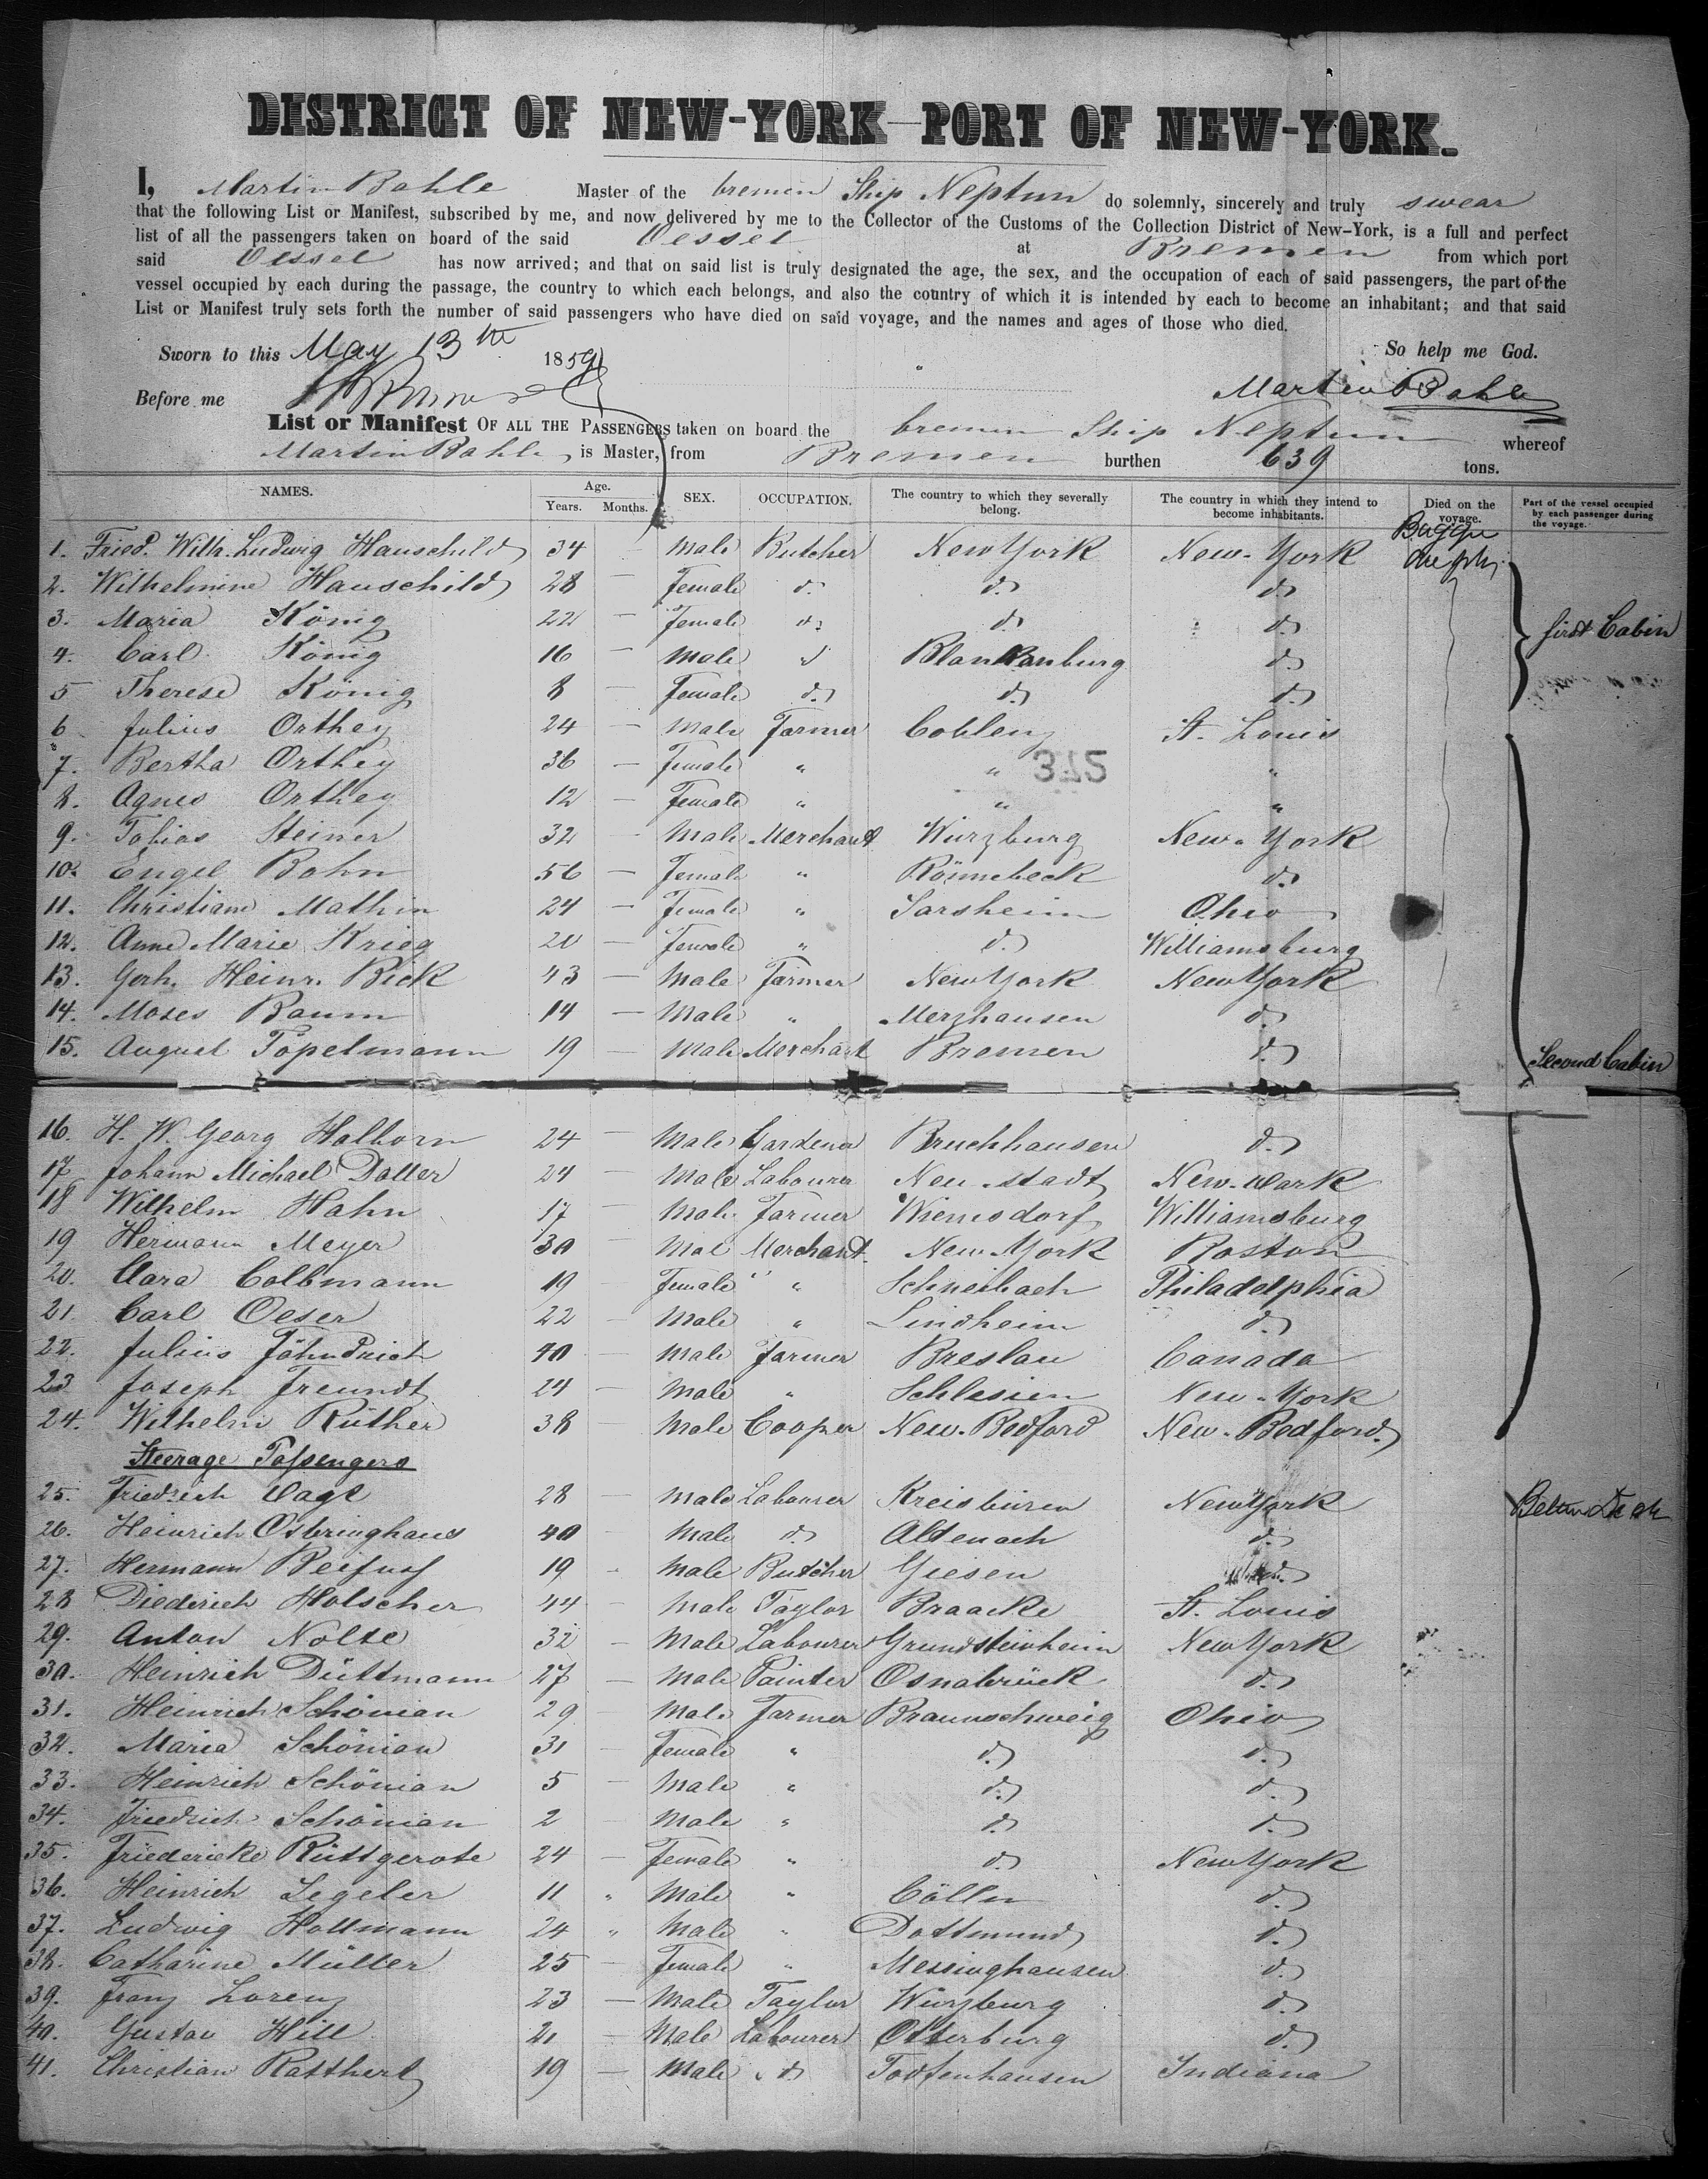 DISTRICT OF NEW-YORK—PORT OF NEW-YORK.
I, Martin Bahle Master of the bremen Ship Neptun do solemnly, sincerely and truly swear
that the following List or Manifest, subscribed by me, and now delivered by me to the Collector of the Customs of the Collection District of New-York, is a full and perfect
list of all the passengers taken on board of the said Vessel at Bremen from which port
said Vessel has now arrived; and that on said list is truly designated the age, the sex, and the occupation of each of said passengers, the part of the
vessel occupied by each during the passage, the country to which each belongs, and also the country of which it is intended by each to become an inhabitant; and that said
List or Manifest truly sets forth the number of said passengers who have died on said voyage, and the names and ages of those who died.
Sworn to this May 13th 1859 So help me God.
Before me Martin Bahle
List or Manifest OF ALL THE PASSENGERS taken on board the bremen Ship Neptun whereof
Martin Bahle is Master, from Bremen burthen 639 tons.
NAMES. Age. Years. Months. SEX. OCCUPATION. The country to which they severally belong. The country in which they intend to become inhabitants. Died on the voyage. Part of the vessel occupied by each passenger during the voyage.
1. Fried. Wilh. Ludwig Hauschild 34 - Male Butcher New York New-York
2. Wilhelmine Hauschild 28 - Female d. d. d.
3. Maria König 22 - Female d. d. d.
first Cabin
4. Carl König 16 - Male d Blankenburg d.
5 Therese König 8 - Female d. d. d.
6 Julius Orthey 24 - Male Farmer Coblenz St. Louis
7. Bertha Orthey 36 - Female " " "
372
8. Agnes Orthey 12 - Female " " "
9. Tobias Steiner 32 - Male Merchant Würzburg New-York
10. Engel Bohn 56 - Female " Rönnebeck d.
11. Christiane Mathin 24 - Female " Sarsheim Ohio
12. Anne Marie Krieg 20 - Female " d. Williamsburg
13. Gerh. Heinr. Bick 43 - Male Farmer New York New York
14. Moses Baum 14 - Male " Merzhausen d.
15. August Töpelmann 19 - Male Merchant Bremen d.
Second Cabin
16. H. W. Georg Halborn 24 - Male Gardener Bruchhausen d.
17 Johann Michael Daller 24 - Male Labourer Neu-stadt New-York
18 Wilhelm Hahn 17 - Male Farmer Wiemsdorf Williamsburg
19 Hermann Meyer 30 - Male Merchant New York Boston
20. Clara Collmann 19 - Female " Philadelphia
21. Carl Oeser 22 - Male " Lindheim d.
22. Julius Fähndrich 40 - Male Farmer Breslau Canada
23 Joseph Freundt 24 - Male " Schlesien New-York
24. Wilhelm Rüther 38 - Male Cooper New-Bedford New-Bedford.
Steerage Passengers
25. Friedrich Vagt 28 - Male Labourer Kreisbüren New York
26. Heinrich Osbringhaus 40 - Male d. Altenach d.
27. Hermann Beifuss 19 - Male Butcher Giesen d.
28 Diederich Holscher 44 - Male Taylor Braacke St. Louis
29. Anton Nolte 32 - Male Labourer Grundsteinheim New York
30. Heinrich Düttmann 27 - Male Painter Osnabrück d.
31. Heinrich Schönian 29 - Male Farmer Braunschweig Ohio
32. Maria Schönian 31 - Female " d. d.
33. Heinrich Schönian 5 - Male " d. d.
34. Friedrich Schönian 2 - Male " d. d.
35. Friedericke Rüttgerote 24 - Female " d. New York
36. Heinrich Segeler 11 " Male " Cölln d.
37. Ludwig Hollmann 24 " Male " Dottmund d.
38. Catharine Müller 25 - Female " Messinghausen d.
39. Franz Lorenz 23 - Male Taylor Würzburg d.
40. Gustav Hill 21 - Male Labourer Otterburg d.
41. Christian Ratthert 19 - Male d. Todtenhausen Indiana